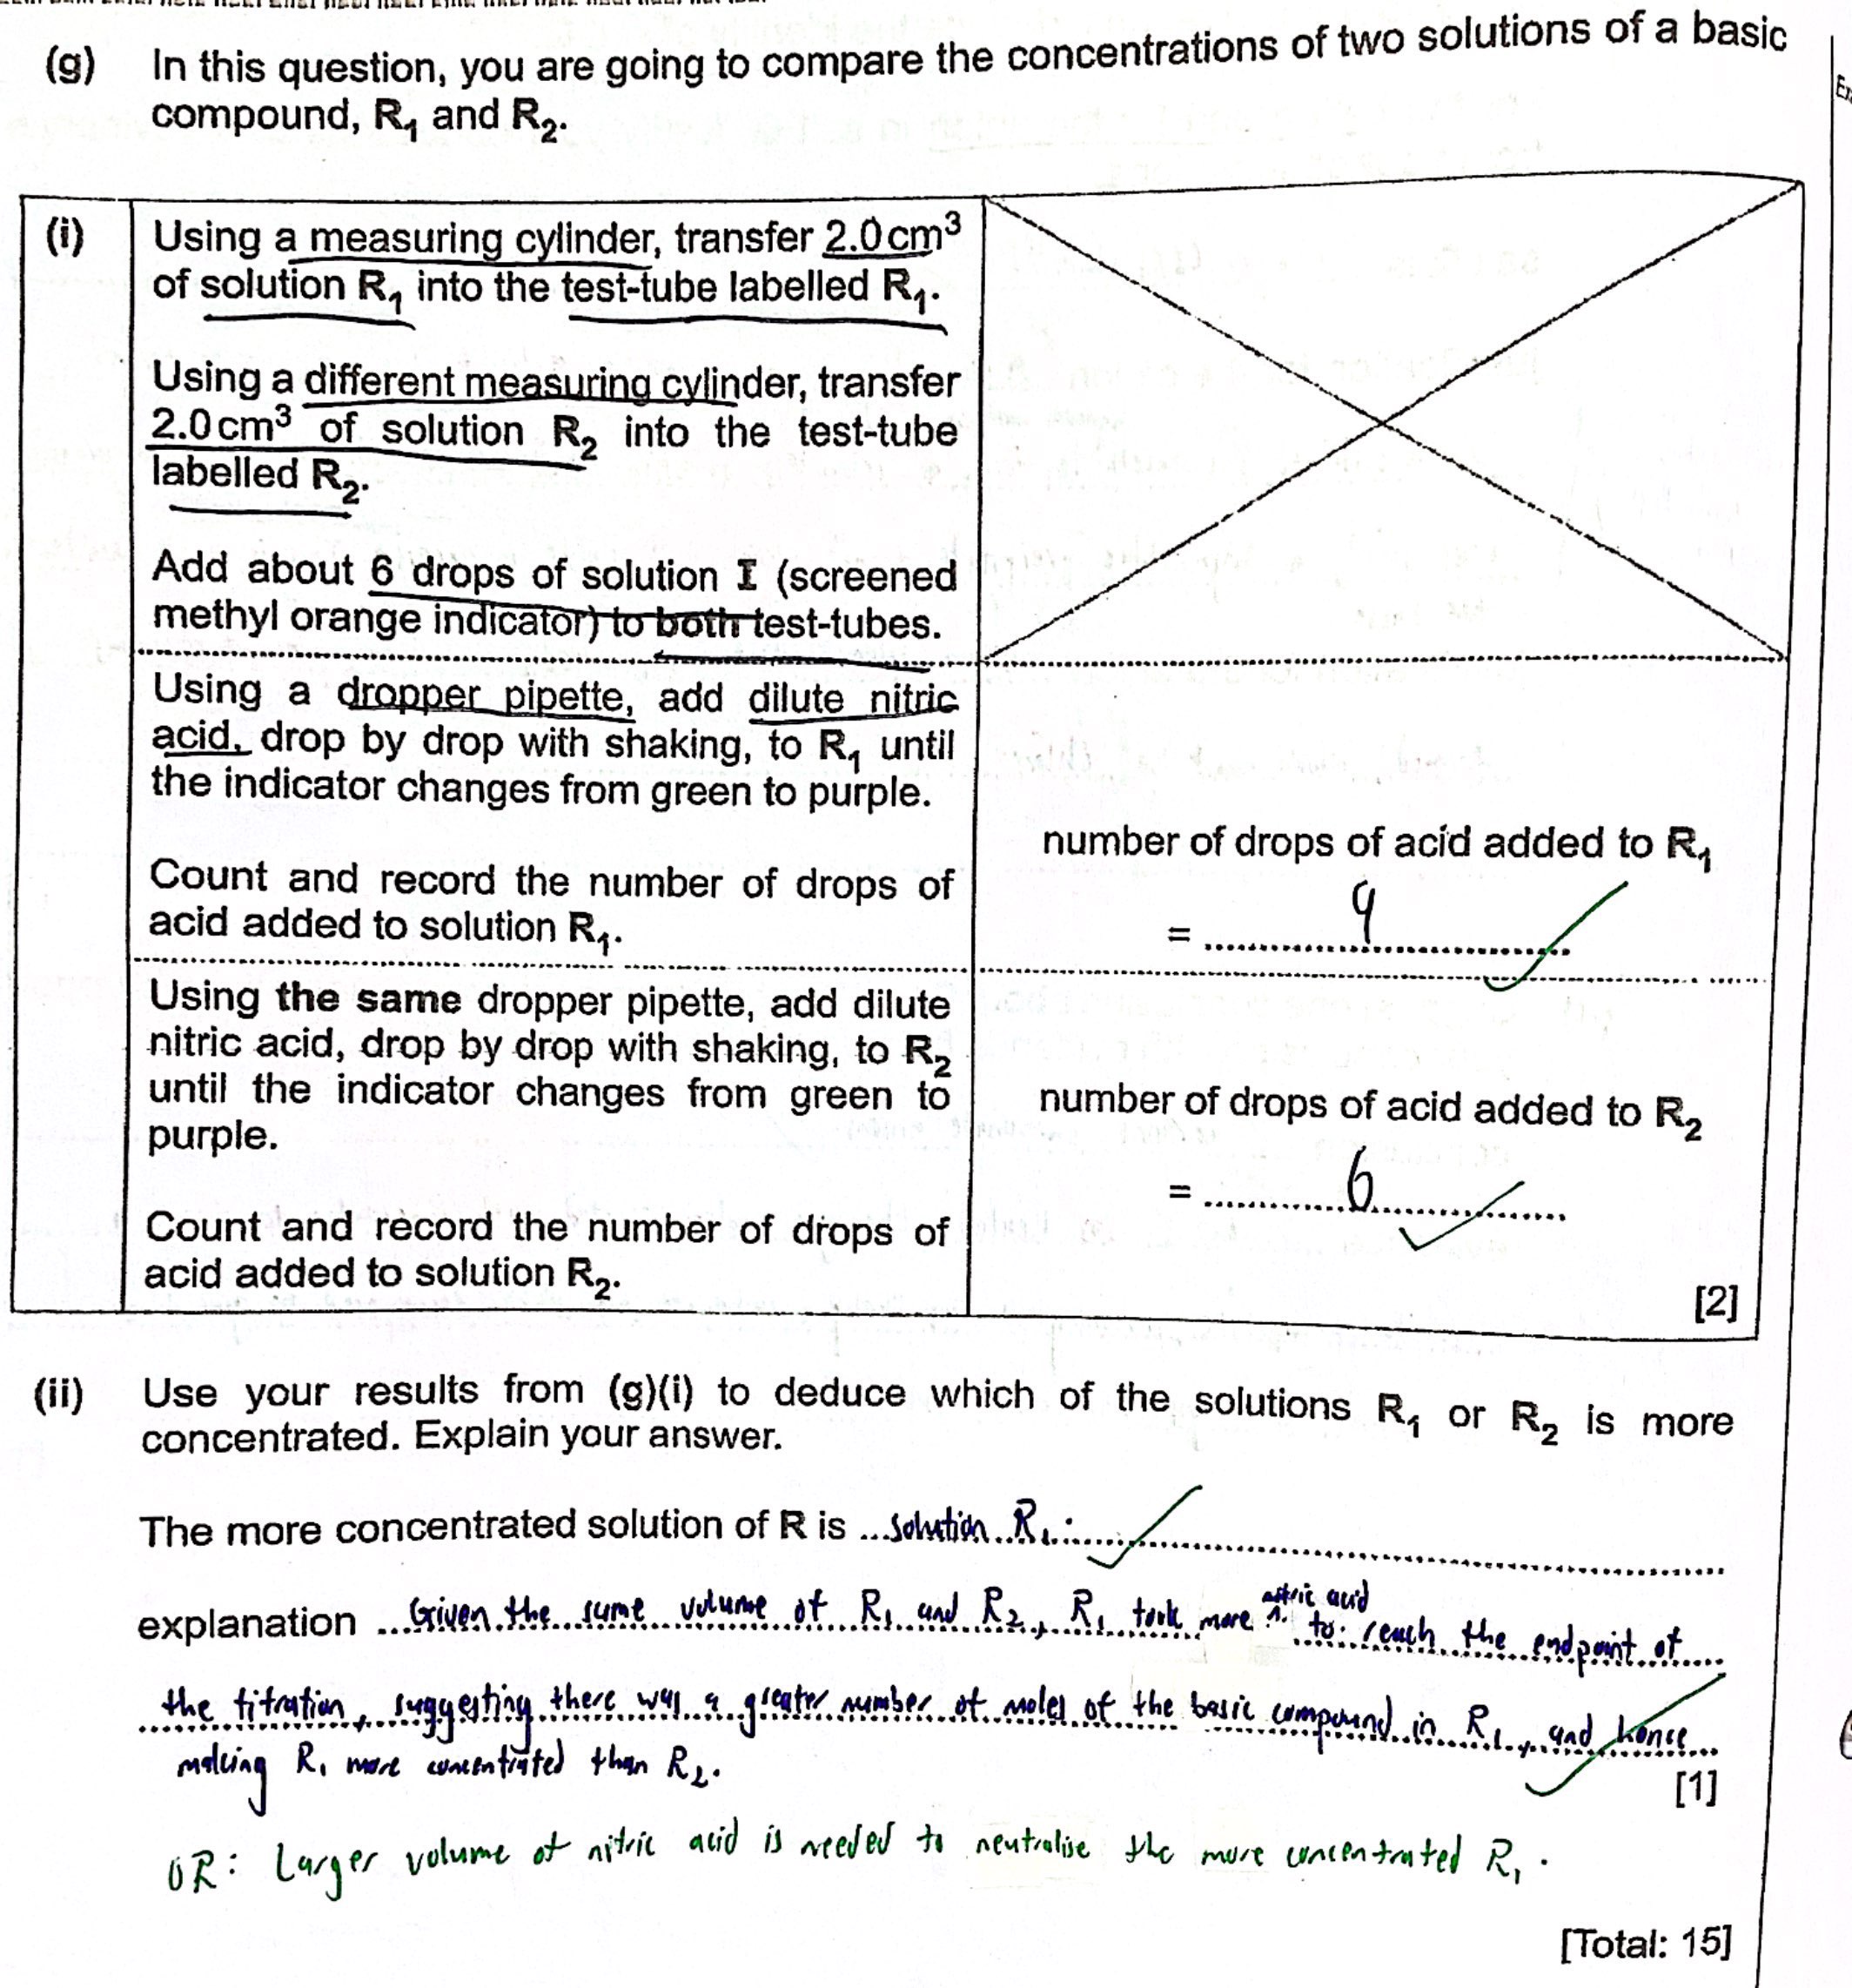 (g) In this question, you are going to compare the concentrations of two solutions of a basic
compound, R₁ and R₂.
(i) Using a measuring cylinder, transfer 2.0 cm³
of solution R₁ into the test-tube labelled R₁.
Using a different measuring cylinder, transfer
2.0 cm³ of solution R₂ into the test-tube
labelled R₂.
Add about 6 drops of solution I (screened
methyl orange indicator) to both test-tubes.
Using a dropper pipette, add dilute nitric
acid, drop by drop with shaking, to R₁ until
the indicator changes from green to purple.
Count and record the number of drops of
acid added to solution R₁.
number of drops of acid added to R₁
= 9
Using the same dropper pipette, add dilute
nitric acid, drop by drop with shaking, to R₂
until the indicator changes from green to
purple.
Count and record the number of drops of
acid added to solution R₂.
number of drops of acid added to R₂
= 6
[2]
(ii) Use your results from (g)(i) to deduce which of the solutions R₁ or R₂ is more
concentrated. Explain your answer.
The more concentrated solution of R is solution R₁.
explanation Given the same volume of R₁ and R₂, R₁ took more nitric acid to reach the endpoint of
the titration, suggesting there was a greater number of moles of the basic compound in R₁, and hence
making R₁ more concentrated than R₂.
[1]
OR: Larger volume of nitric acid is needed to neutralise the more concentrated R₁.
[Total: 15]